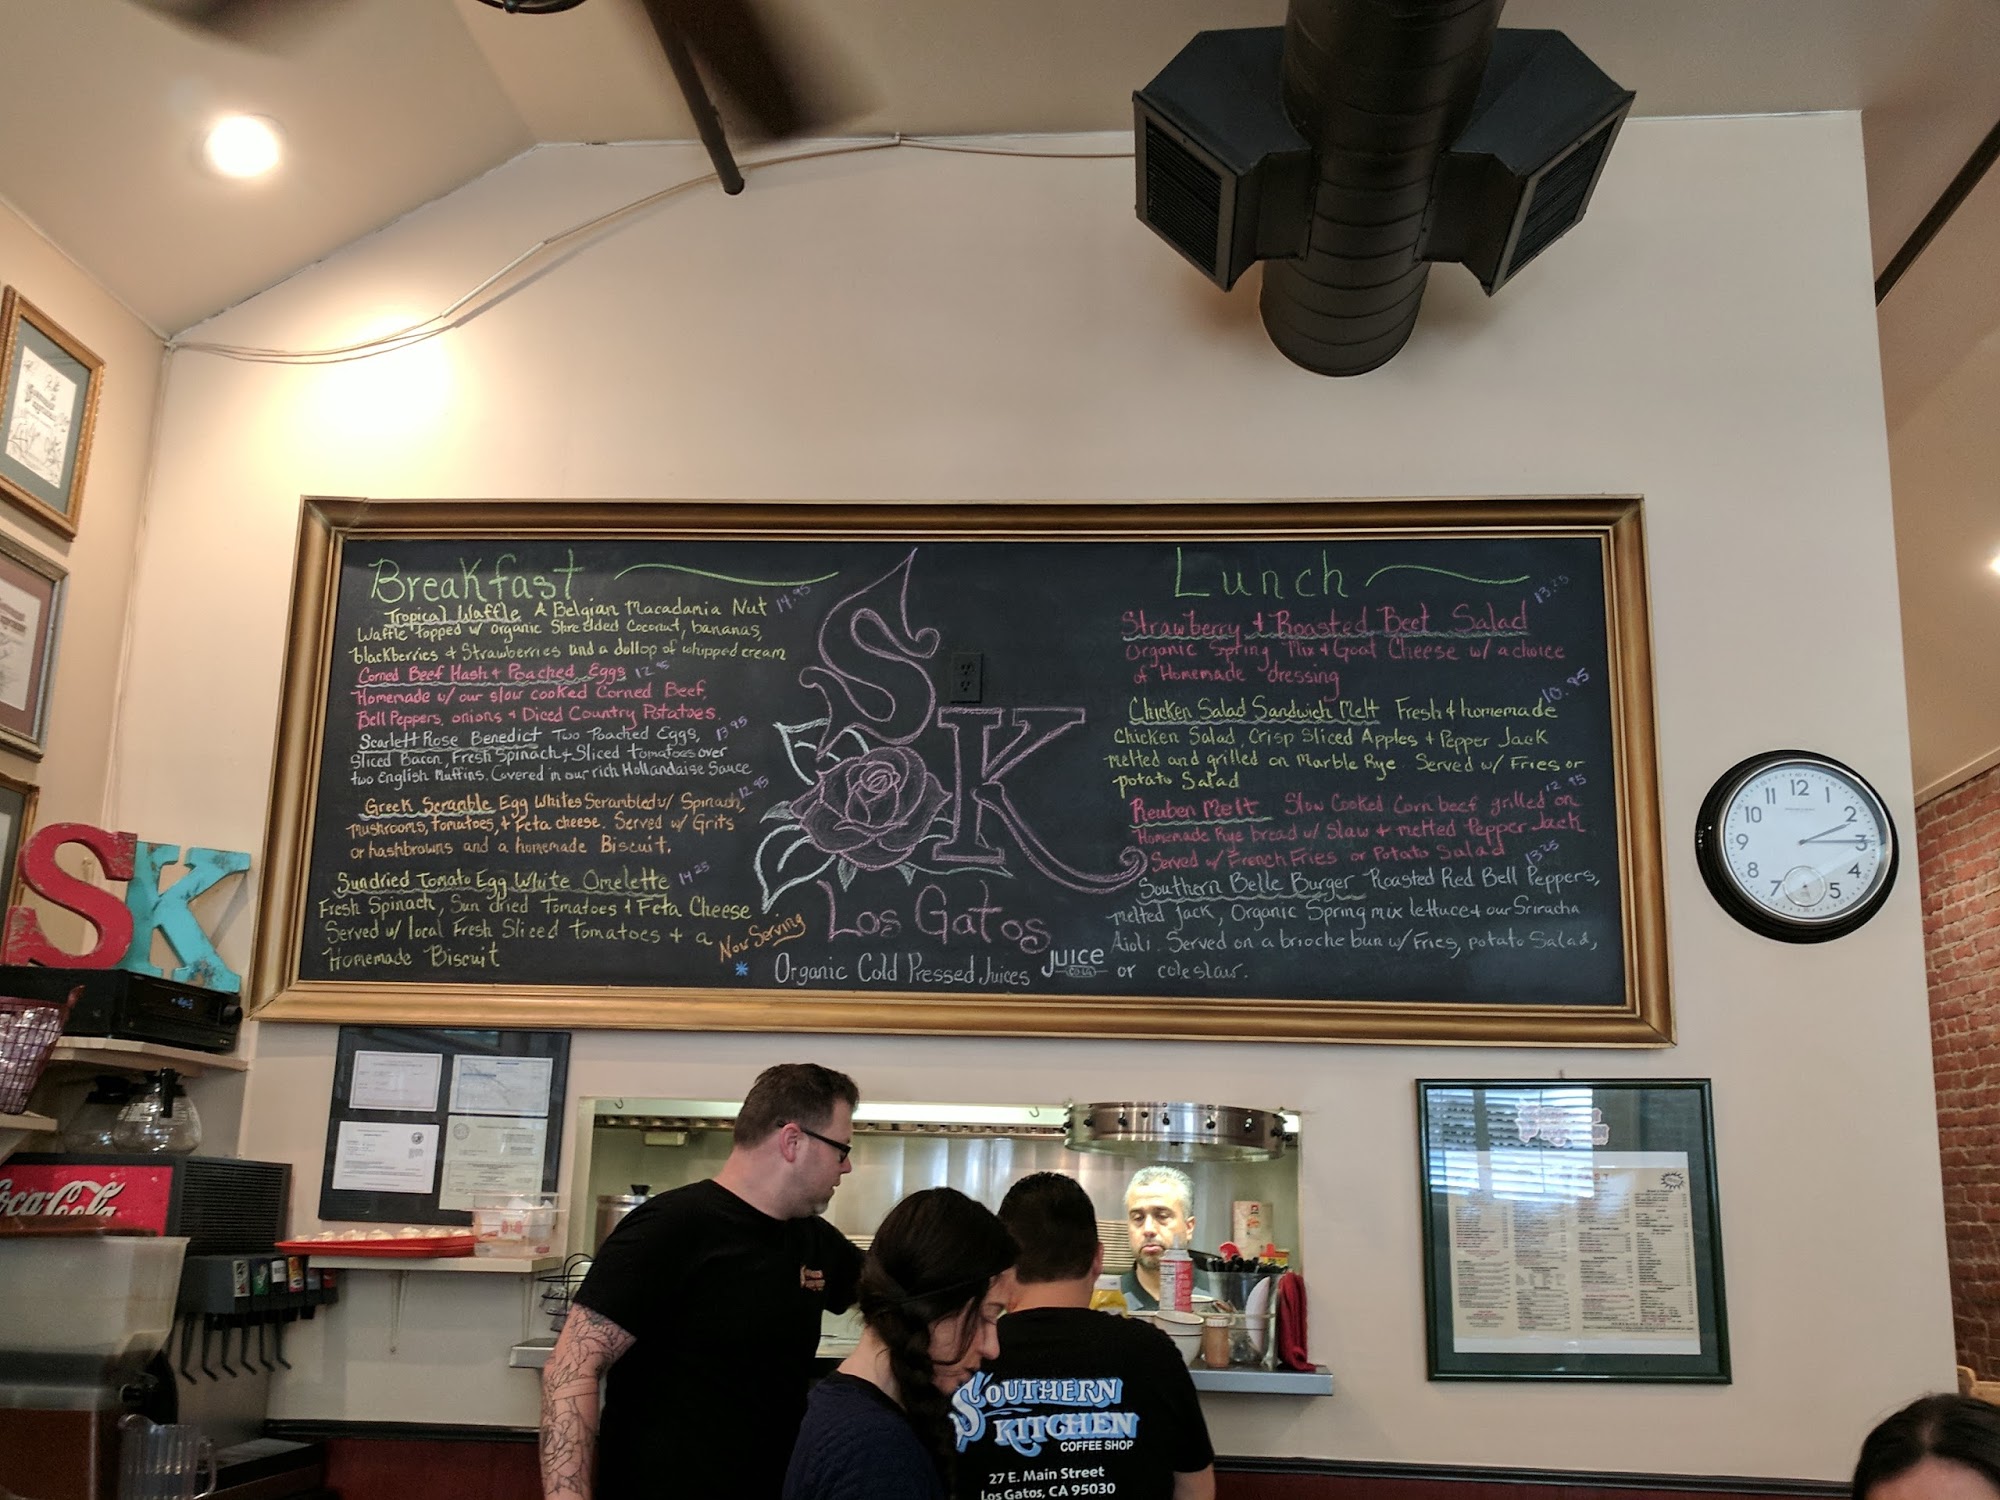 Breakfast
Tropical Waffle A Belgian Macadamia Nut 14.95
Waffle topped w/ organic Shredded Coconut, bananas,
blackberries & Strawberries and a dollop of whipped cream
Corned Beef Hash & Poached Eggs 12.95
Homemade w/ our slow cooked Corned Beef,
Bell Peppers, onions & Diced Country Potatoes.
Scarlett Rose Benedict Two Poached Eggs, 13.95
Sliced Bacon, Fresh Spinach & Sliced tomatoes over
two English Muffins. Covered in our rich Hollandaise Sauce
Greek Scramble Egg Whites Scrambled w/ Spinach, 12.95
mushrooms, tomatoes, & Feta cheese. Served w/ Grits
or hashbrowns and a homemade Biscuit.
Sundried Tomato Egg White Omelette 14.25
Fresh Spinach, Sun dried Tomatoes & Feta Cheese
Served w/ local Fresh Sliced Tomatoes & a
Homemade Biscuit
SK
Los Gatos
Now Serving
* Organic Cold Pressed Juices
JUICE
Lunch
Strawberry & Roasted Beet Salad 13.25
Organic Spring Mix & Goat Cheese w/ a choice
of Homemade dressing
Chicken Salad Sandwich Melt Fresh & homemade 10.95
Chicken Salad, Crisp Sliced Apples & Pepper Jack
melted and grilled on Marble Rye. Served w/ Fries or
potato Salad
Reuben Melt Slow Cooked Corn beef grilled on 12.95
Homemade Rye bread w/ Slaw & melted Pepper Jack
Served w/ French Fries or Potato Salad
Southern Belle Burger Roasted Red Bell Peppers, 13.25
melted Jack, Organic Spring mix lettuce & our Sriracha
Aioli. Served on a brioche bun w/ Fries, potato Salad,
or coleslaw.
12
1
2
3
4
5
7
8
9
10
11
SK
Coca-Cola
SOUTHERN
KITCHEN
COFFEE SHOP
27 E. Main Street
Los Gatos, CA 95030